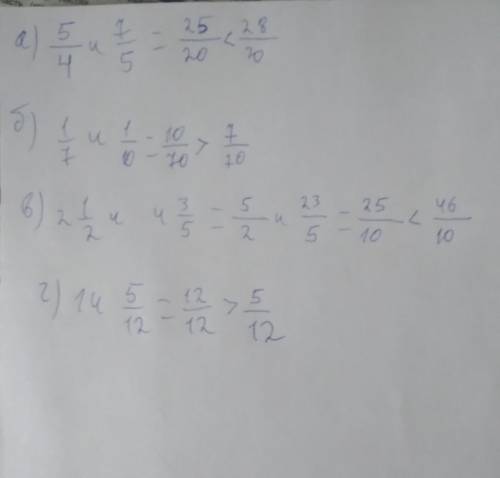 а) 5/4 и 7/5 = 25/20 < 28/20
б) 1/7 и 1/10 = 10/70 > 7/70
в) 2 1/2 и 4 3/5 = 5/2 и 23/5 = 25/10 < 46/10
г) 1 и 5/12 = 12/12 > 5/12